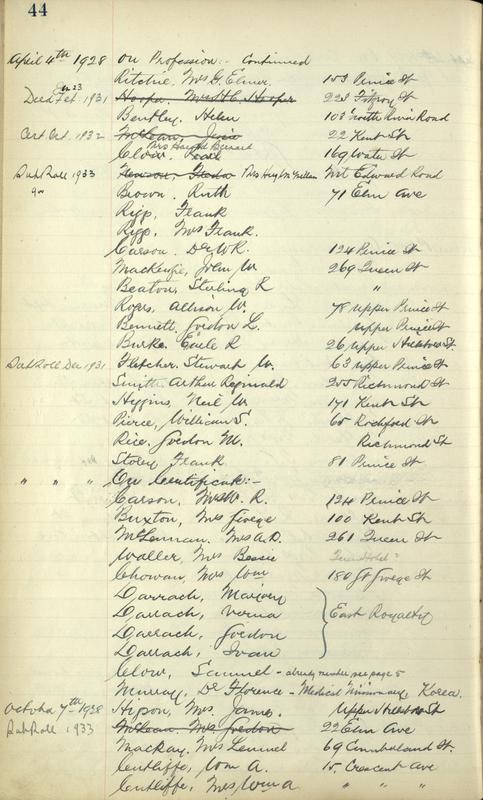 44
April 4th 1928 On Profession:- Continued
Ritchie, Mrs G. Elmer 153 Prince St
Jan 23
Died Feb 1931 Hooper, Mrs H.C. Hooper 223 Fitzroy St
Bentley, Helen 103 North River Road
Cert. Oct. 1932 McLean, Jessie 22 Kent St
Mrs Harold Bernard
Clow, Pearl 169 Water St
Sub Roll 1933 Mrs Hry McMillan Mt Edward Road
Brown, Ruth 71 Elm Ave
Rigg, Frank
Rigg, Mrs Frank.
Carson, Dr W.R. 124 Prince St
MacKenzie, John W. 269 Queen St
Beaton, Sterling R "
Rogers, Allison W. 78 Upper Prince St
Bennett, Gordon L. Upper Prince St
Burke, Earle R 26 Upper Hillsboro St.
Sub Roll Dec 1931 Fletcher, Stewart W. 63 Upper Prince St
Smith Arthur Reginald 205 Richmond St
Higgins, Neil W. 171 Kent St
Pierce, William S. 65 Rochford St
Rice, Gordon M. Richmond St
Storey Frank 81 Prince St
" " " On Certificate:-
Carson, Mrs W. R. 124 Prince St
Buxton, Mrs George 100 Kent St
McLennan, Mrs A.D. 261 Queen St
Waller, Mrs Bessie Queen Hotel
Chowan, Mrs Wm 180 Gt George St
Darrach, Marion
Darrach, Verna } East Royalty
Darrach, Gordon
Darrach, Ivan
Clow, Samuel - already member see page 5
Murray, Dr Florence - Medical Missionary, Korea.
October 7th 1928 Hipson, Mrs James. Upper Hillsboro St
Sub Roll 1933 McLean, Mrs Gordon 22 Elm Ave
MacKay, Mrs Lemuel 69 Cumberland St.
Cutliffe, Wm A. 15 Crescent Ave
Cutliffe, Mrs Wm A " " "